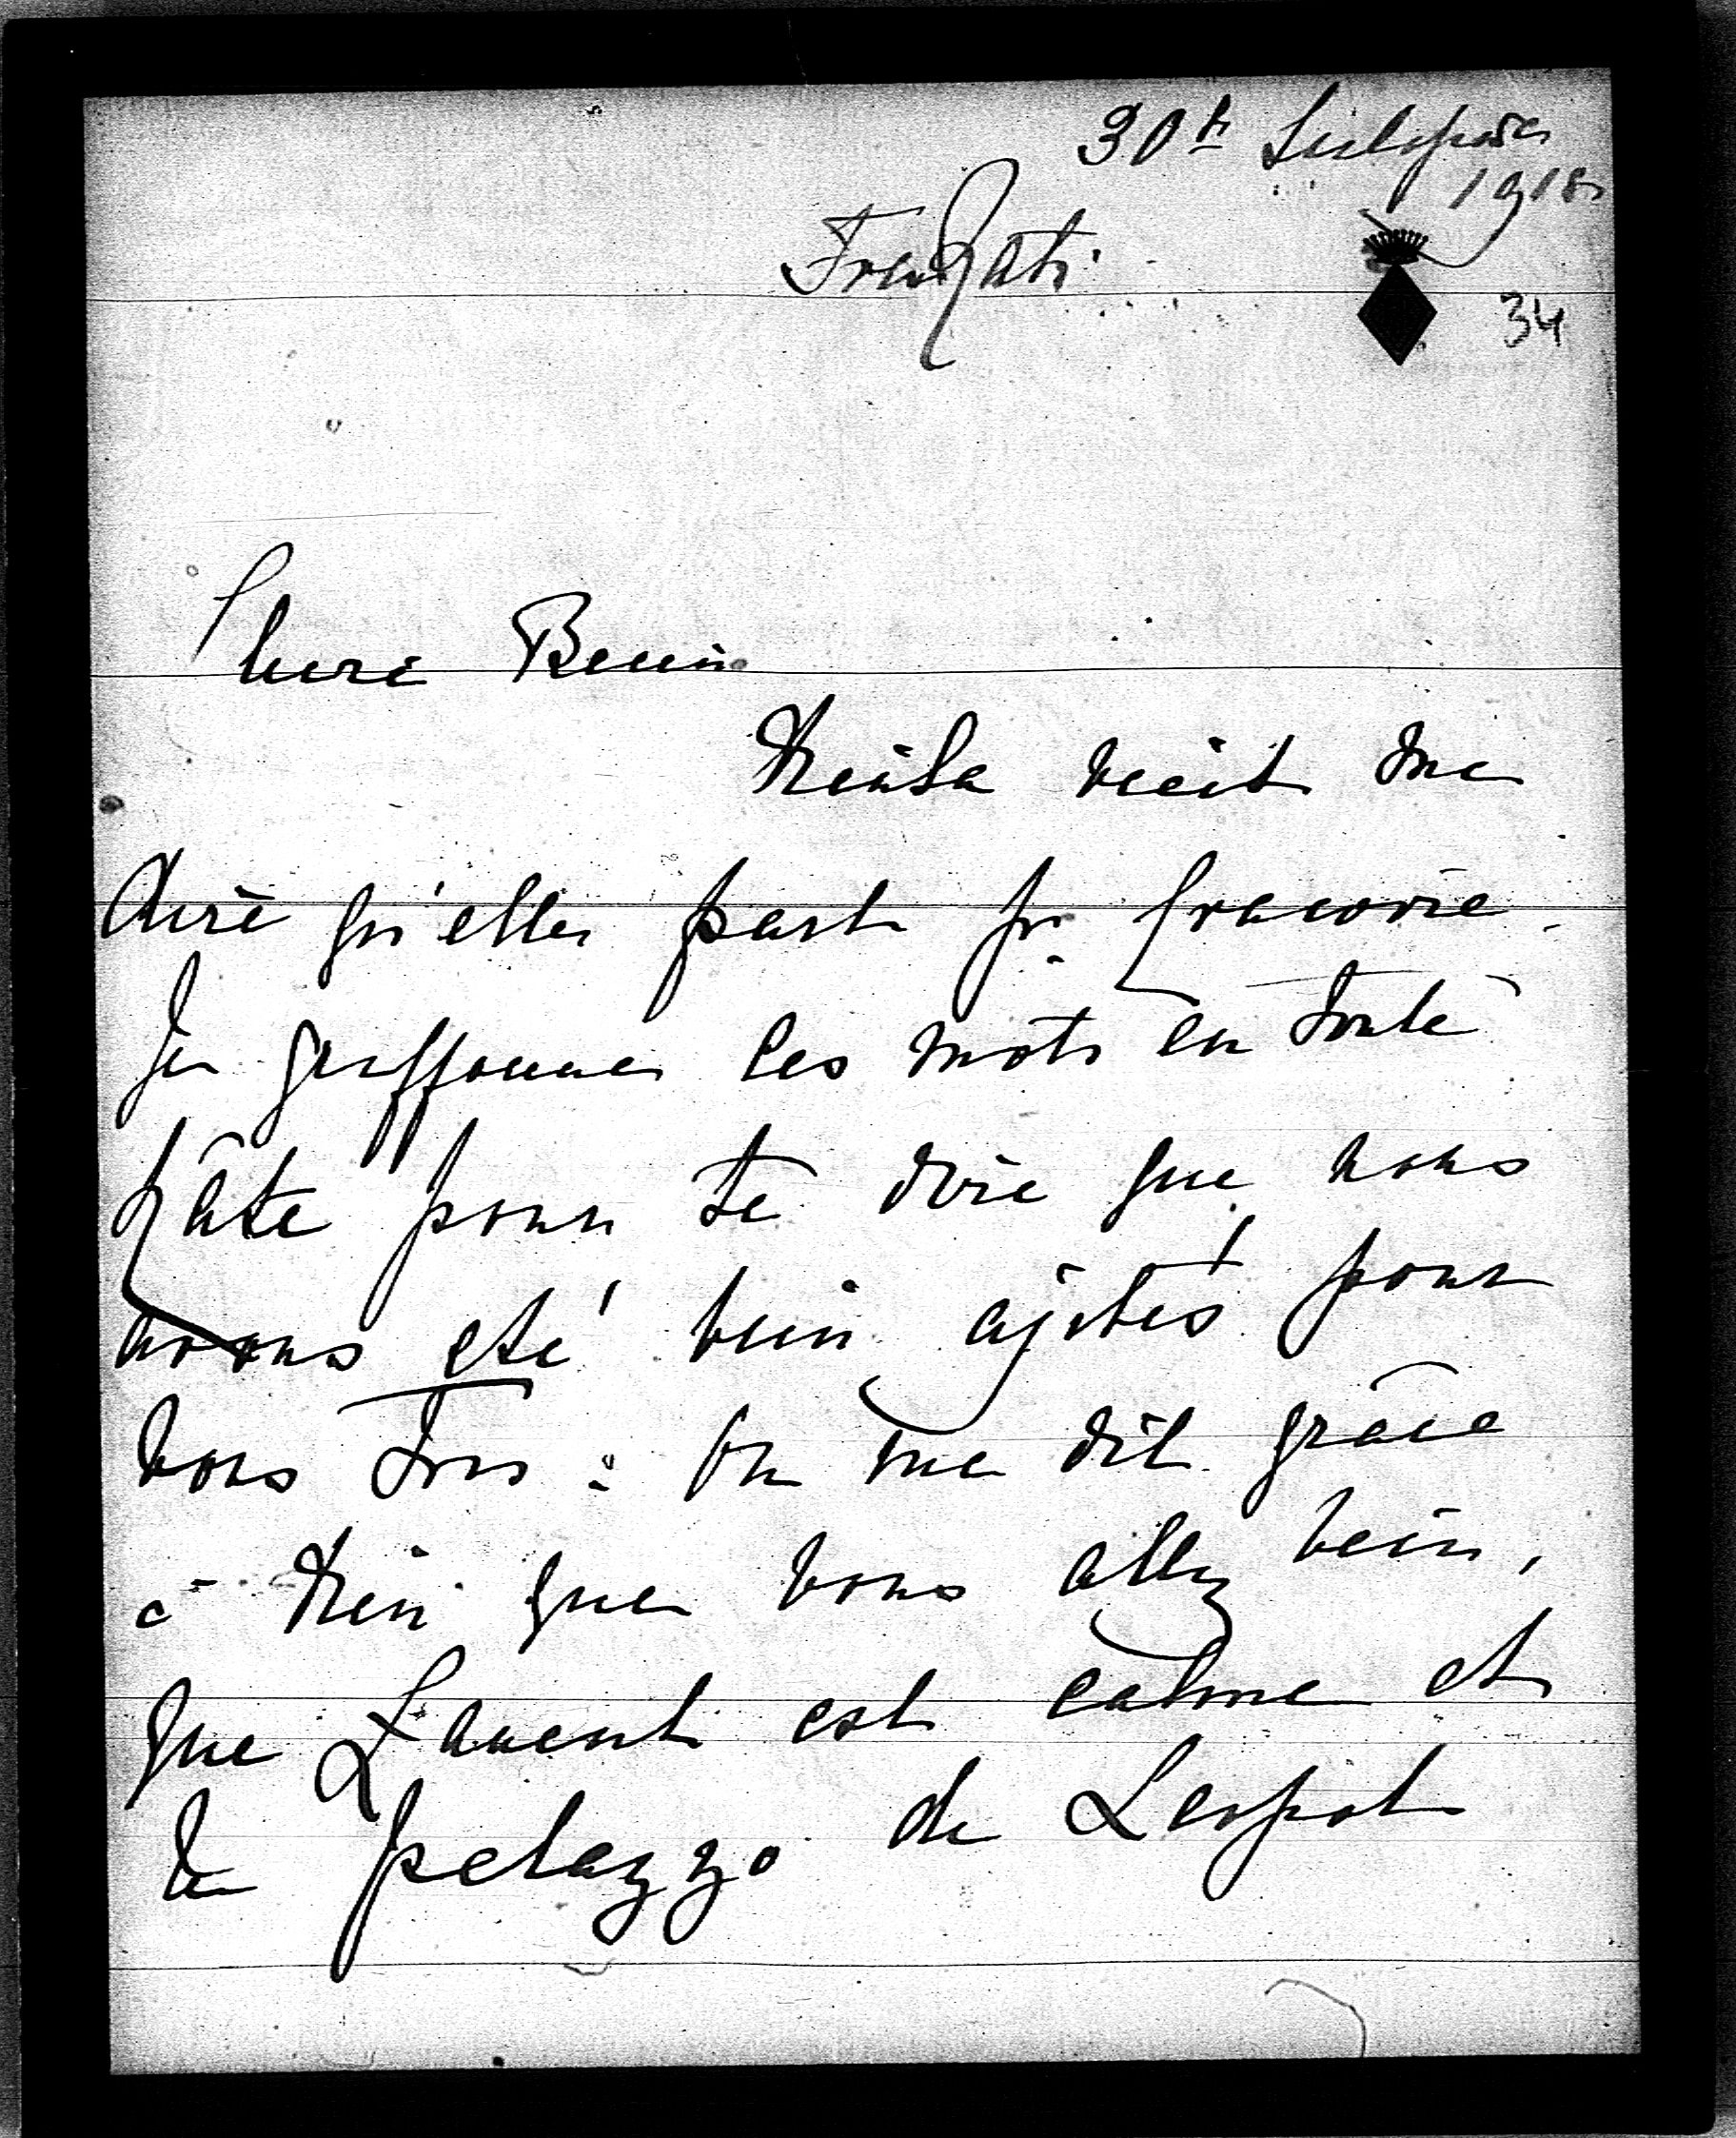 30 t. Listopada
1918
34
Chère
vient me
dire qu'elle part pr Cracovie.
Je griffonne ces mots en toute
hâte pour te dire que nous
avons été bien agités pour
vous tous : On me dit grâce
à Dieu que vous allez bien,
que Łancut est calme et
le palazzo de Leopol